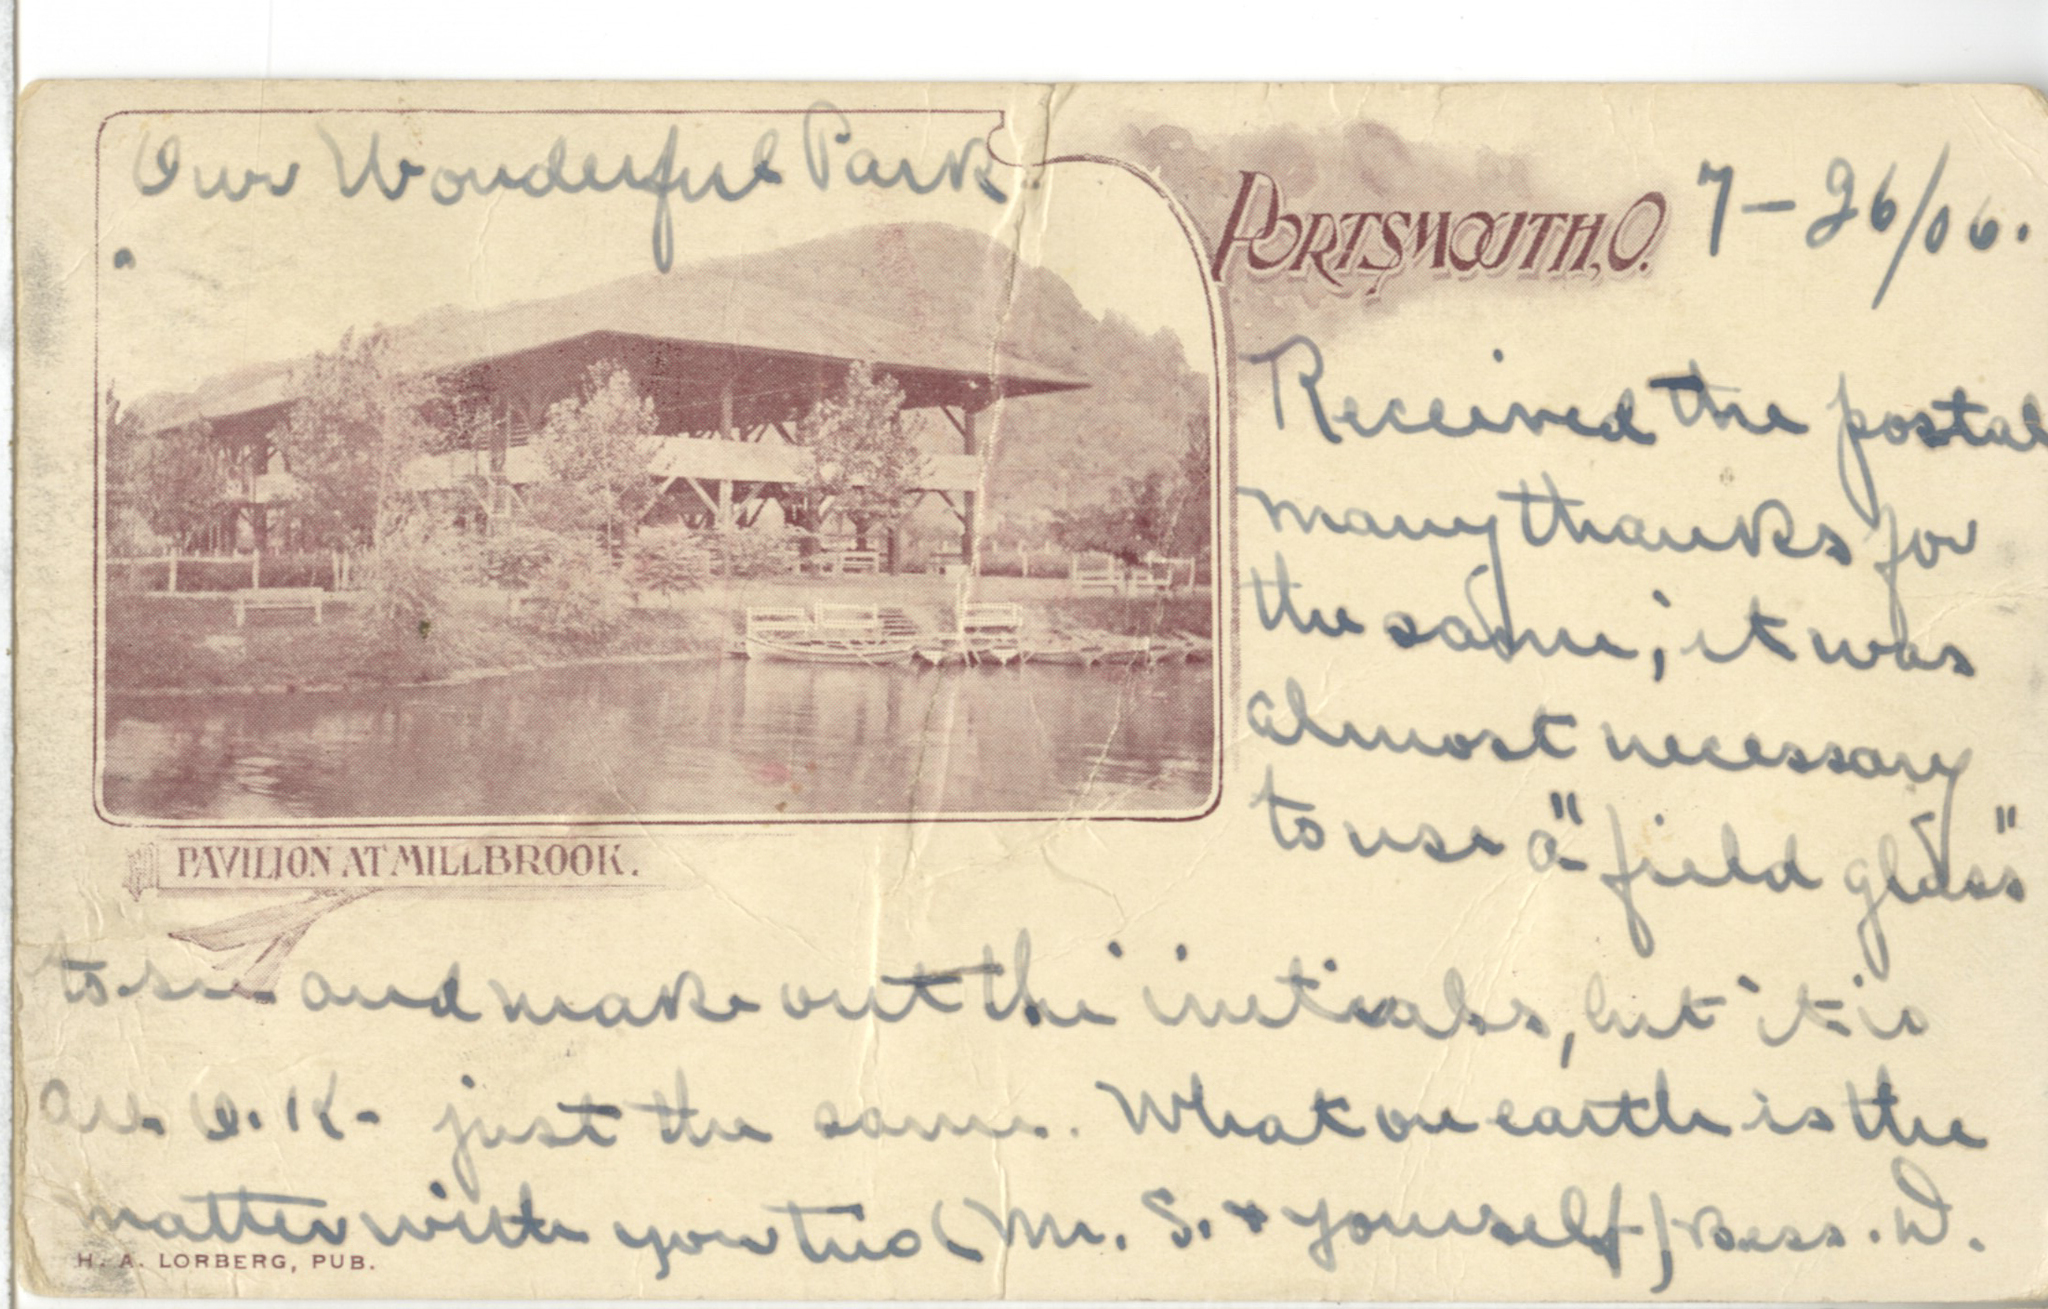 Our Wonderful Park.
PORTSMOUTH, O.
7-26/06.
Received the postal
many thanks for
the same; it was
almost necessary
to use a "field glass"
to see and make out the initials, but it is
all O.K. just the same. What on earth is the
matter with you two (Mr. S. + yourself) Bess. W.
PAVILION AT MILLBROOK.
H. A. LORBERG, PUB.